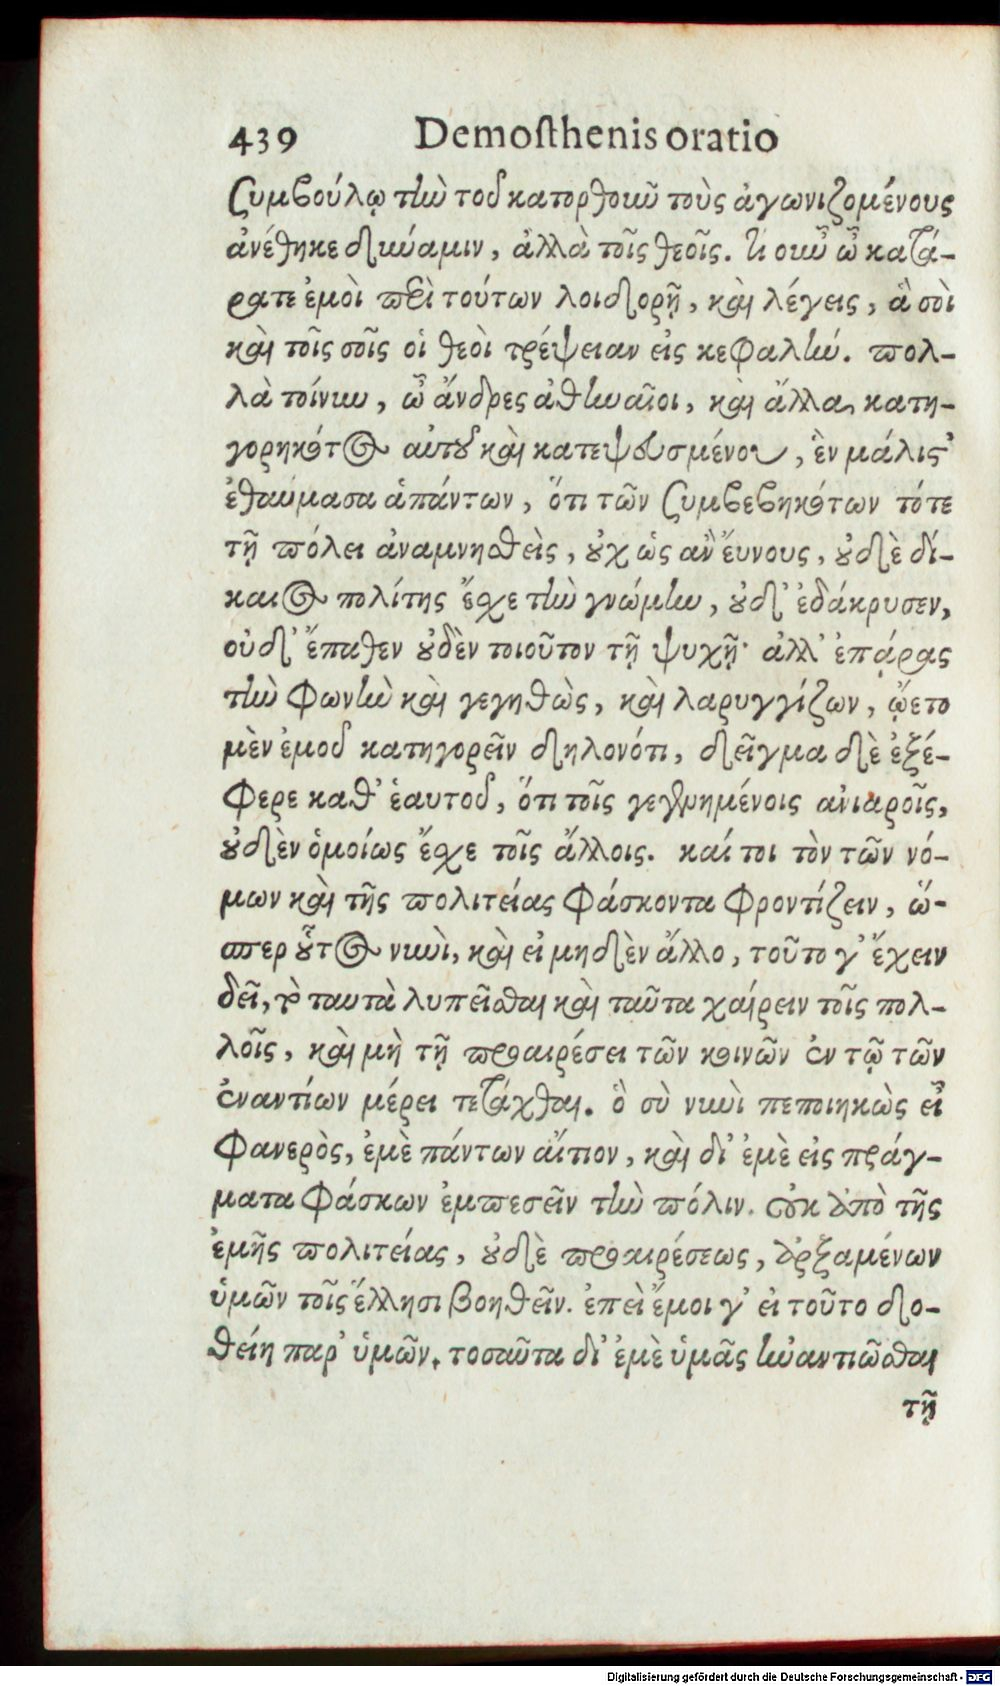 439 Demosthenis oratio
συμβούλῳ τὴν τοῦ κατορθοῦν τοὺς ἀγωνιζομένους
ἀνέθηκε δύναμιν, ἀλλὰ τοῖς θεοῖς. τί οὖν ὦ κατά-
ρατε ἐμοὶ περὶ τούτων λοιδορῇ, καὶ λέγεις, ἃ σοὶ
καὶ τοῖς σοῖς οἱ θεοὶ τρέψειαν εἰς κεφαλήν. πολ-
λὰ τοίνυν, ὦ ἄνδρες ἀθηναῖοι, καὶ ἄλλα κατη-
γορηκότος αὐτοῦ καὶ κατεψευσμένου, ἓν μάλιστ’
ἐθαύμασα ἁπάντων, ὅτι τῶν συμβεβηκότων τότε
τῇ πόλει ἀναμνησθεὶς, οὐχ ὡς ἂν ἔυνους, οὐδὲ δί-
καιος πολίτης ἔσχε τὴν γνώμην, οὐδ’ ἐδάκρυσεν,
οὐδ’ ἔπαθεν οὐδὲν τοιοῦτον τῇ ψυχῇ· ἀλλ’ ἐπάρας
τὴν φωνὴν καὶ γεγηθὼς, καὶ λαρυγγίζων, ᾤετο
μὲν ἐμοῦ κατηγορεῖν δηλονότι, δεῖγμα δὲ ἐξέ-
φερε καθ’ ἑαυτοῦ, ὅτι τοῖς γεγενημένοις ἀνιαροῖς,
οὐδὲν ὁμοίως ἔσχε τοῖς ἄλλοις. καί τοι τὸν τῶν νό-
μων καὶ τῆς πολιτείας φάσκοντα φροντίζειν, ὥ-
σπερ οὗτος νυνὶ, καὶ εἰ μηδὲν ἄλλο, τοῦτο γ’ ἔχειν
δεῖ, τὸ ταυτὰ λυπεῖσθαι καὶ ταῦτα χαίρειν τοῖς πολ-
λοῖς, καὶ μὴ τῇ προαιρέσει τῶν κοινῶν ἐν τῷ τῶν
ἐναντίων μέρει τετάχθαι. ὃ σὺ νυνὶ πεποιηκὼς εἶ
φανερὸς, ἐμὲ πάντων αἴτιον, καὶ δι’ ἐμὲ εἰς πράγ-
ματα φάσκων ἐμπεσεῖν τὴν πόλιν. οὐκ ἀπὸ τῆς
ἐμῆς πολιτείας, οὐδὲ προαιρέσεως, ἀρξαμένων
ὑμῶν τοῖς ἕλλησι βοηθεῖν. ἐπεὶ ἔμοι γ’ εἰ τοῦτο δο-
θείη παρ’ ὑμῶν, τοσαῦτα δι’ ἐμὲ ὑμᾶς ἠναντιῶσθαι
τῇ
Digitalisierung gefördert durch die Deutsche Forschungsgemeinschaft - DFG